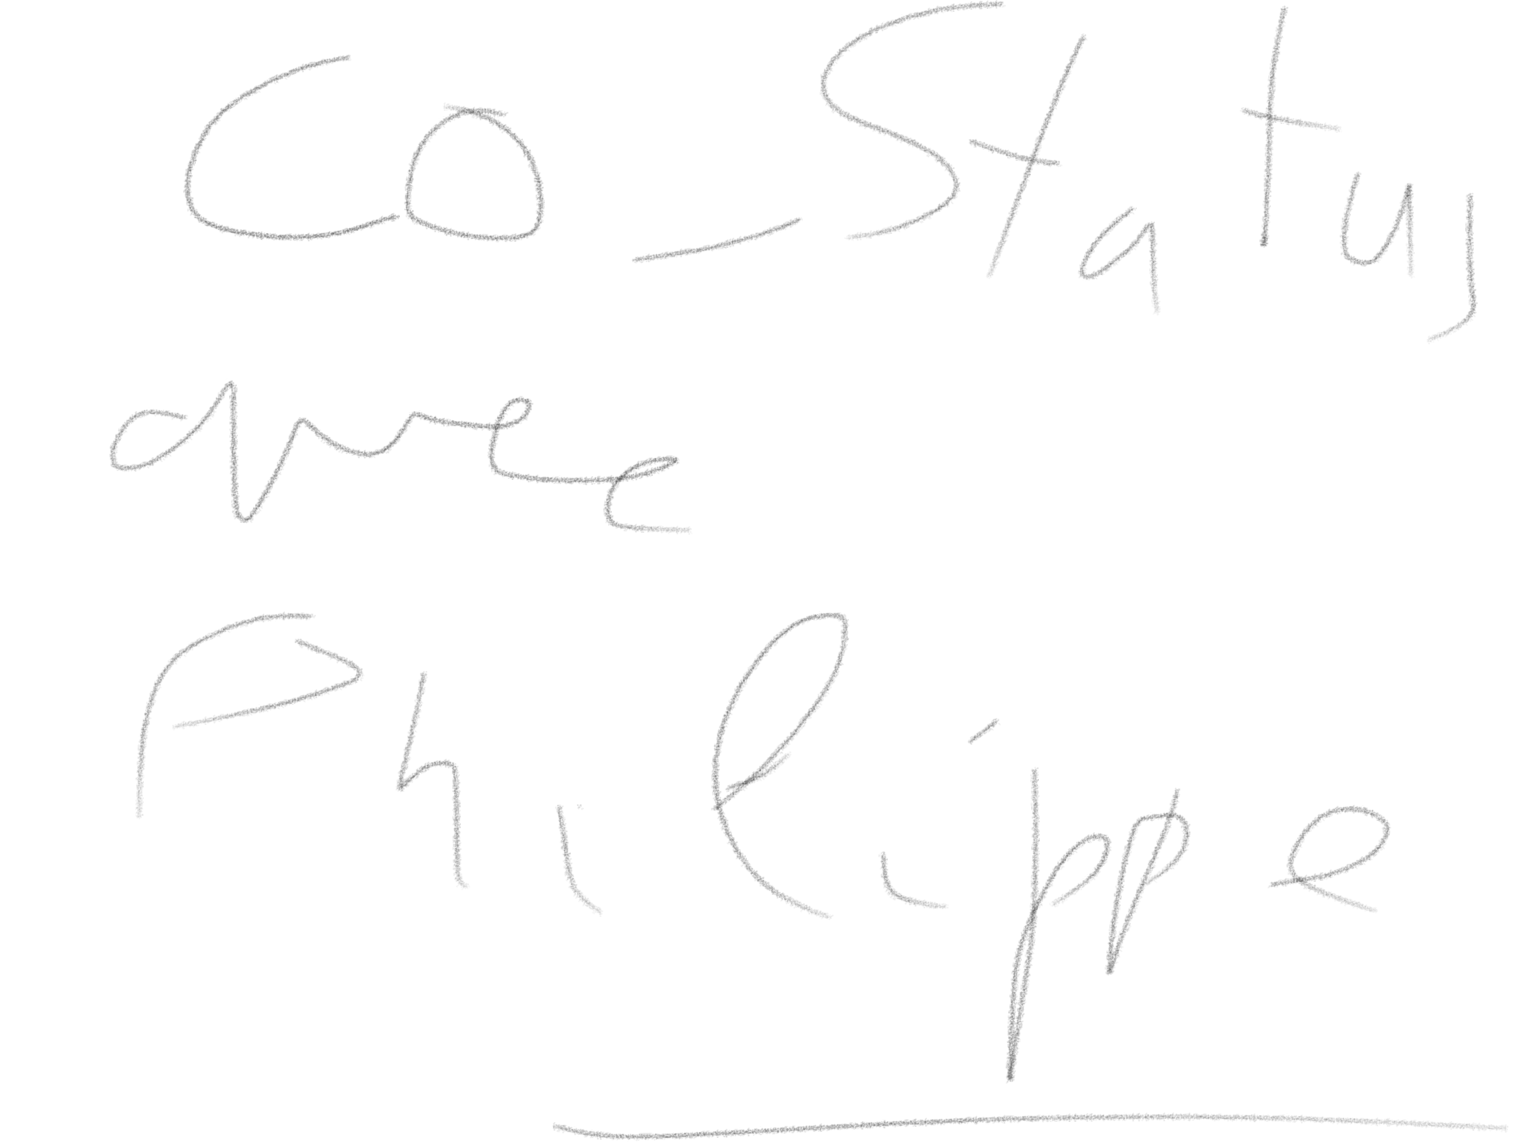 Co_Status
avec
Philippe